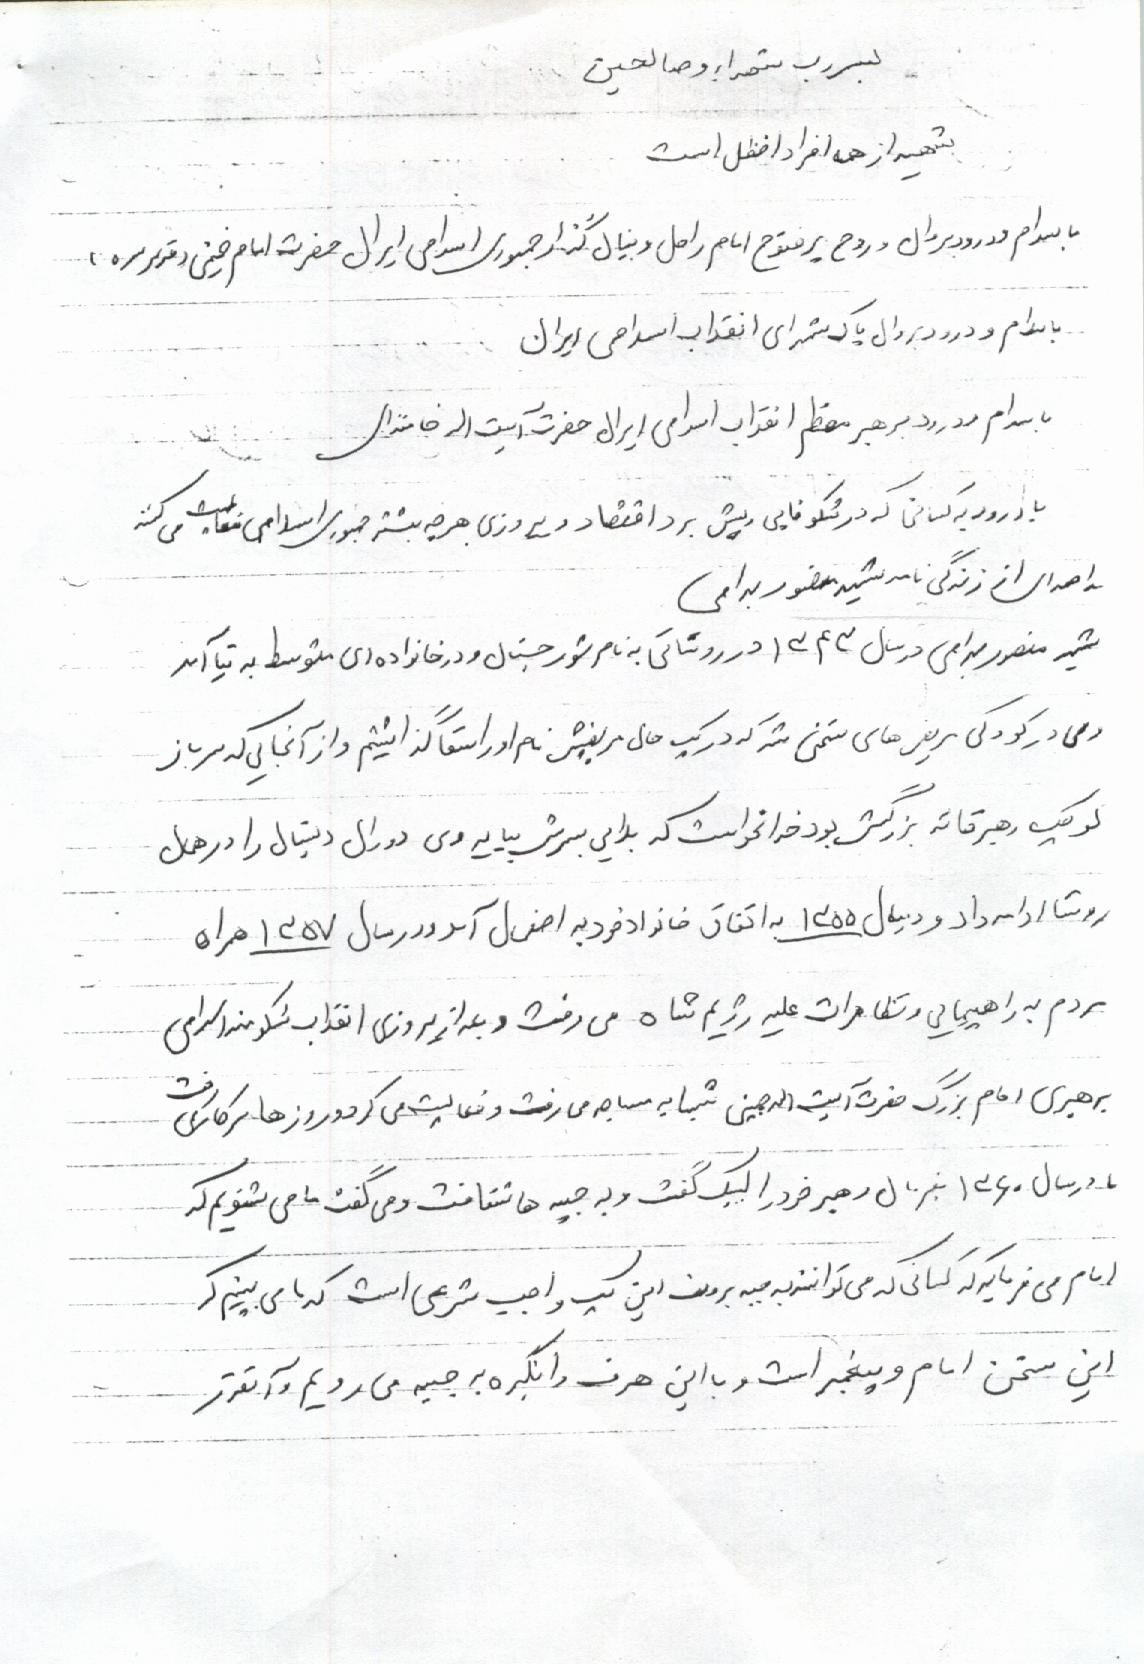 بسم رب شهداء و صالحین
شهید از همه افراد افضل است
با سلام و درود بر روان و روح پر فتوح امام راحل و بنیان گذار جمهوری اسلامی ایران حضرت امام خمینی (قدس سره)
با سلام و درود بر روان پاک شهدای انقلاب اسلامی ایران
با سلام و درود بر رهبر معظم انقلاب اسلامی ایران حضرت آیت اله خامنه‌ای
با درود به کسانی که در شکوفایی و پیش برد اقتصاد و پیروزی هر چه بیشتر جمهوری اسلامی فعالیت می کنند
از زندگی نامه شهید منصور
شهید منصور در سال ۱۳۴۳ در روستائی به نام شور و در خانواده ای متوسط به دنیا آمد
وی در کودکی مریض های سختی شد که در یک حال مریضیش نام او را گذاشتیم و از آنجایی که سرباز
کوچک رهبر بزرگش بود خدا نخواست که بلایی سرش بیاید وی دوران را در همان
روستا ادامه داد و در سال ۱۳۵۵ به اتفاق خانواده خود به اصفهان آمد و در سال ۱۳۵۷ همراه
مردم به راهپیمایی و تظاهرات علیه رژیم شاه می رفت و بعد از پیروزی انقلاب شکوهمند اسلامی
برهبری امام بزرگ حضرت آیت اله خمینی شبها به مساجد می رفت و فعالیت می کرد و روزها سر کار می رفت
تا در سال ۱۳۶۰ بفرمان رهبر خود را لبیک گفت و به جبهه ها شتافت و می گفت ما می شنویم که
امام می فرماید که کسانی که می توانند به جبهه بروند این یک واجب شرعی است که ما می بینیم که
این سخن امام و پیغمبر است و با این هدف و انگیزه به جبهه می رویم و آنقدر